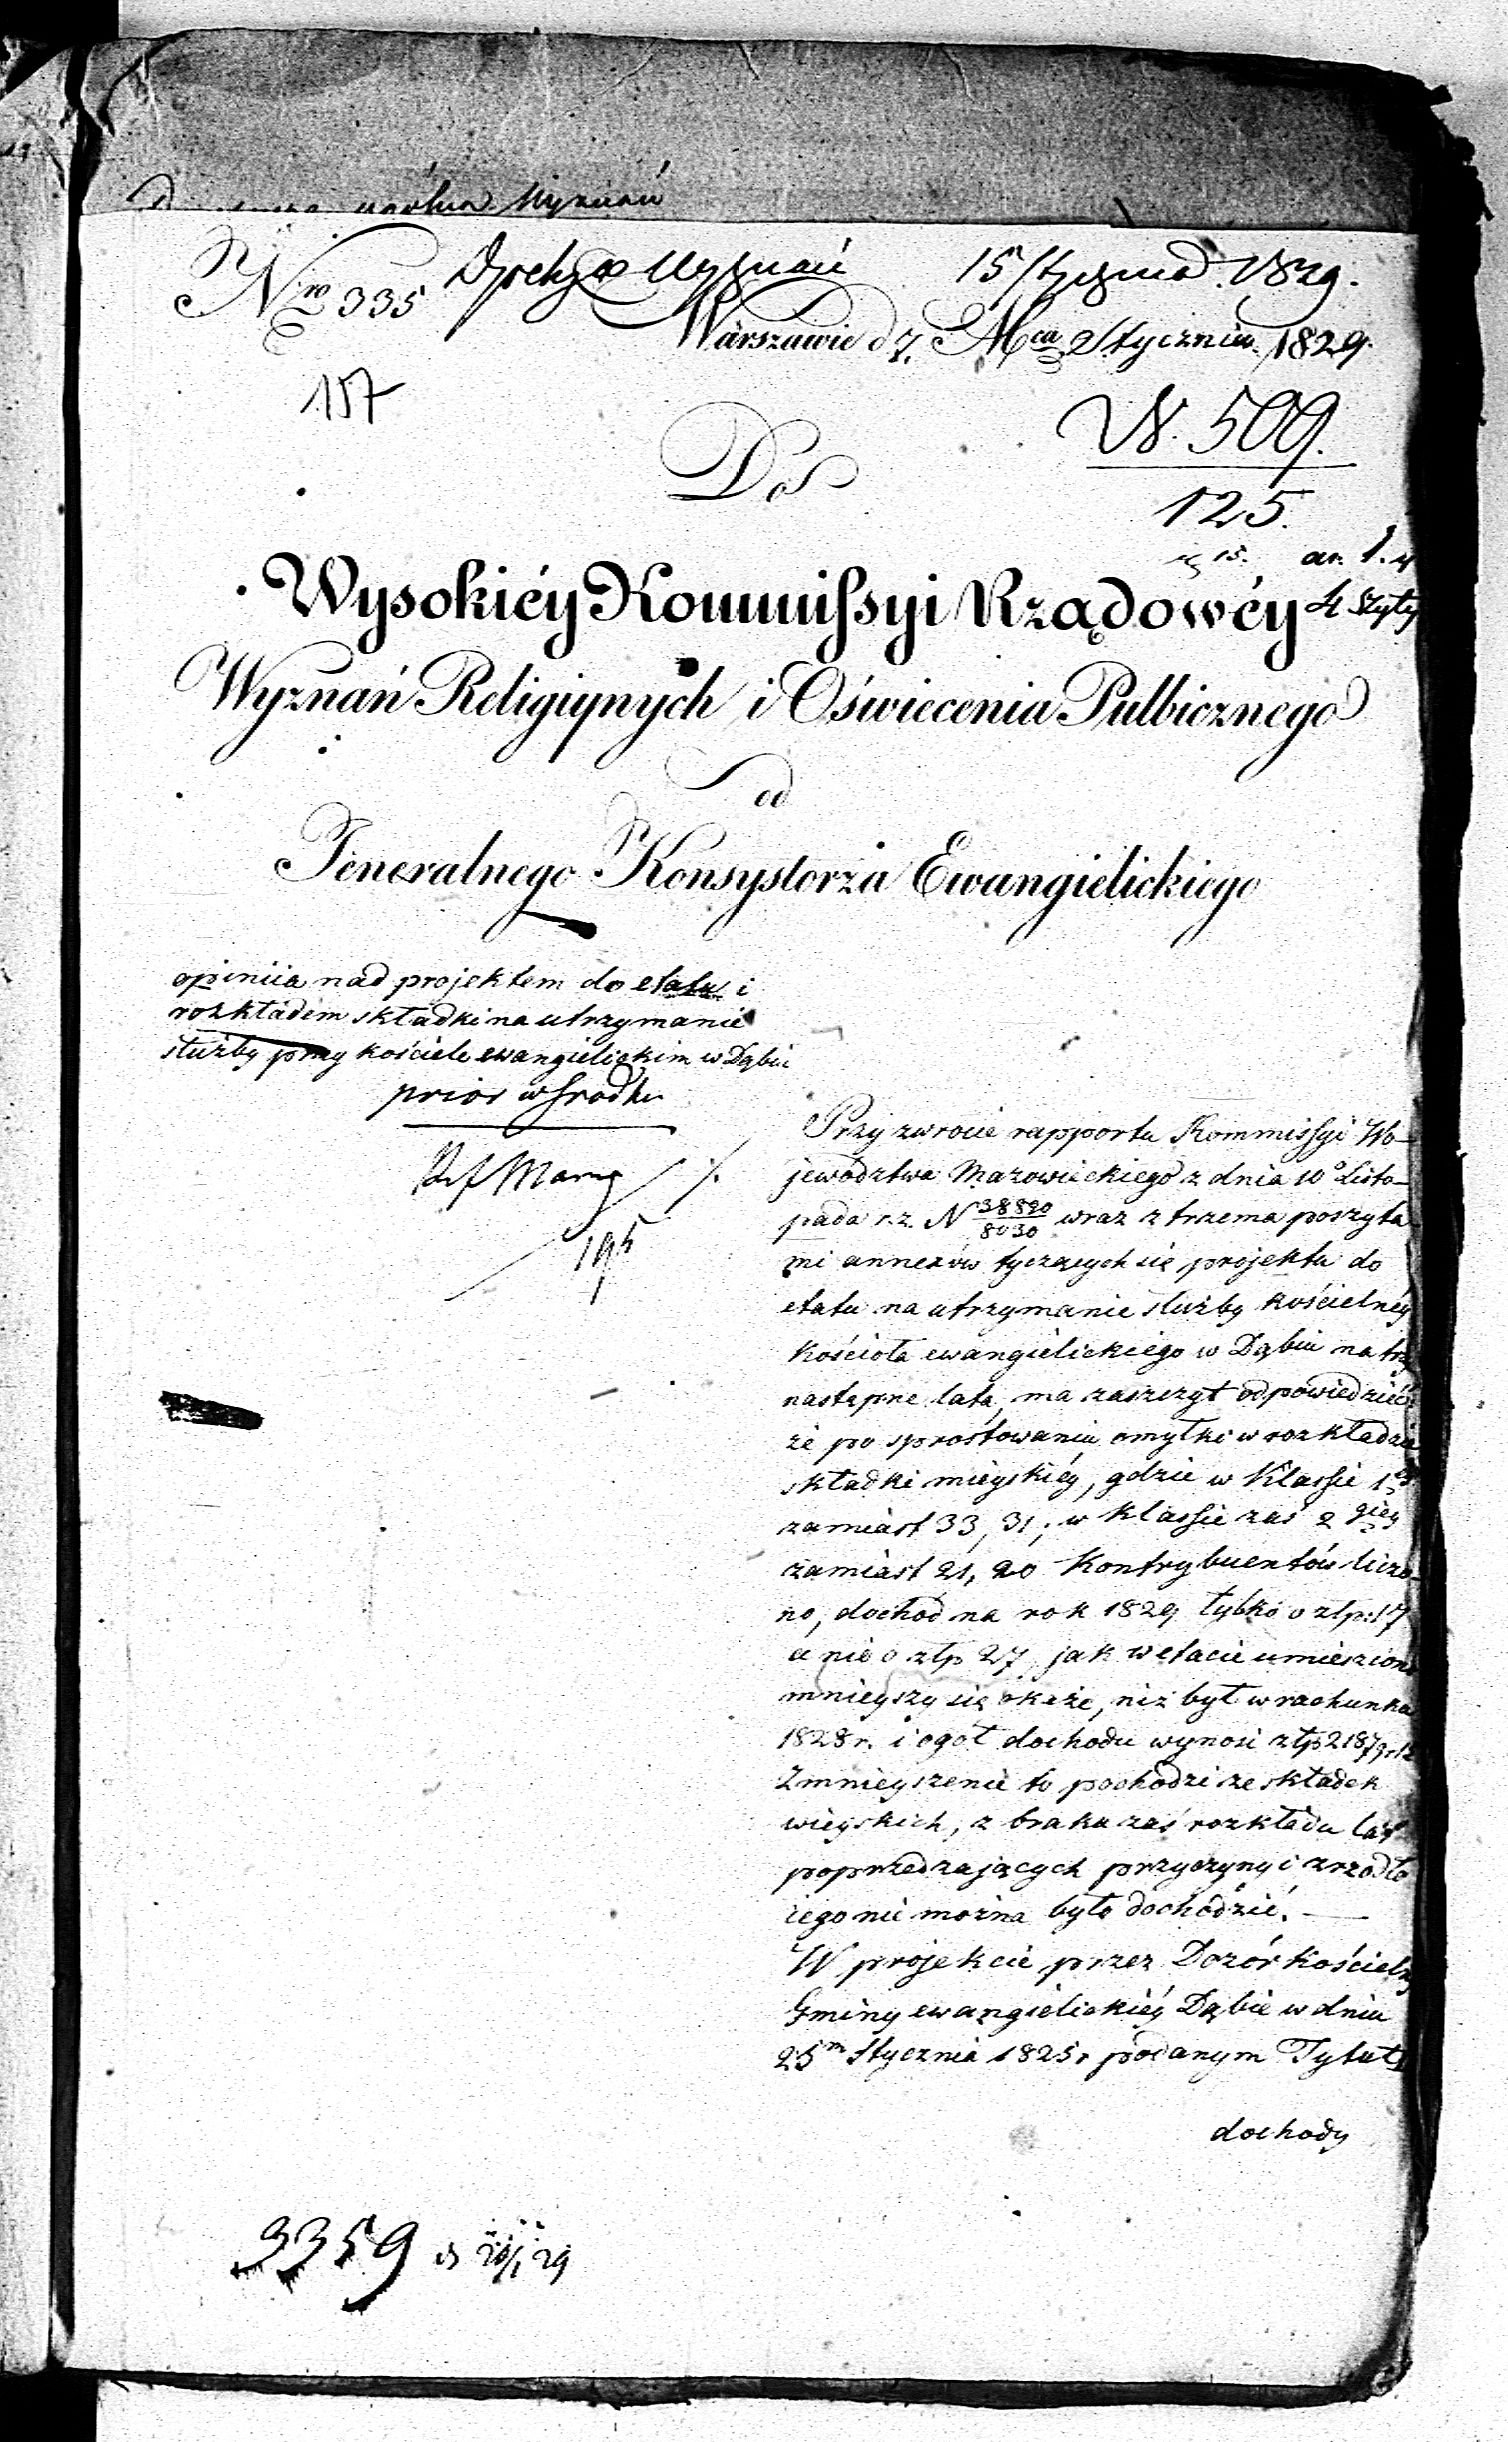 ogólna Wyznań
Nro 335 Wyznań 15 Stycznia 1829.
Warszawie d 7. Mca Stycznia 1829.
157
N. 509.
125.
Do
Wysokiéy Kommissyi Rządowéy
Wyznań Religiynych i Oświecenia Pulbicznego
od
Jeneralnego Konsystorza Ewangielickiego
opiniia nad projektem do etatu i
rozkładem składki na utrzymanie
służby przy kościele ewangielickim w Dąbiu
prior w środku
195
Przy zwrocie rapportu Kommissyi Wo-
jewództwa Mazowieckiego z dnia 10° Listo-
pada r. z. N 38820/8030 wraz z trzema poszyta-
mi annexów tyczących się projektu do
etatu na utrzymanie służby kościelnéy
Kościoła ewangielickiego w Dąbiu na trzy
następne lata, ma zaszczyt odpowiedzieć
że po sprostowaniu omyłki w rozkładzie
składki mieyskiéy, gdzie w Klassie 1éy
zamiast 33, 31; w klassie zaś 2 giéy
zamiast 21, 20 Kontrybuentów liczo-
no, dochod na rok 1829 tylko o złp: 17
a nie o złp 27, jak w etacie umieszczono
mnieyszy się okaże, niż był w rachunku
1828 r. i ogół dochodu wynosi złp 2187 gr 12
Zmnieyszenie to pochodzi ze składek
wieyskich, z braku zaś rozkładu lat
poprzedzających przyczyny i zrzodło
iego nie można było dochodzić. —
W projekcie przez Dozór Kościelny
Gminy ewangielickiéy Dąbie w dniu
25m Stycznia 1825 r podanym Tytuł
dochody
3359 d 20/1 29